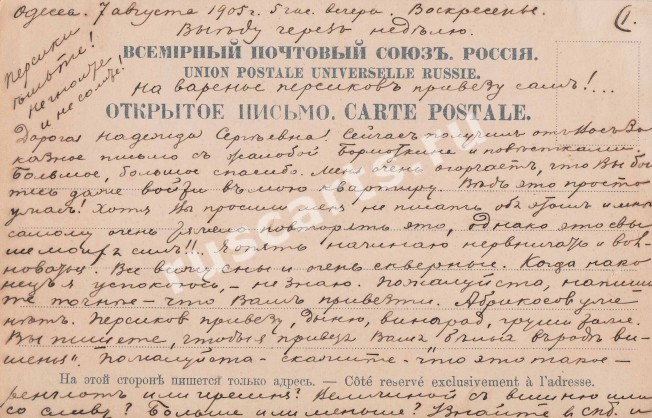 Одесса. 7 августа 1905 г. 5 час. вечера. Воскресенье.
1.
Выѣду черезъ недѣлю.
Персики
ѣшьте!
и не солите!
ВСЕМІРНЫЙ ПОЧТОВЫЙ СОЮЗЪ. РОССІЯ.
UNION POSTALE UNIVERSELLE RUSSIE.
На варенье персиковъ привезу самъ!...
ОТКРЫТОЕ ПИСЬМО. CARTE POSTALE.
Дорогая Надежда Сергѣевна! Сейчасъ получилъ отъ Васъ За-
казное письмо съ жалобой и повѣстками.
Большое, большое спасибо. Меня очень огорчаетъ, что Вы бои-
тесь даже войти въ мою квартиру. Вѣдь это просто
ужасъ! Хотя Вы просили меня не писать объ этомъ и мнѣ
самому очень тяжело повторять это, однако это свы-
ше моихъ силъ!!. Опять начинаю нервничать и вол-
новаться. Все вижу сны и очень скверные. Когда нако-
нецъ я успокоюсь, – не знаю. Пожалуйста, напиши-
те точнѣе – что Вамъ привезти. Абрикосовъ уже
нѣтъ. Персиковъ привезу, дыню, виноградъ, груши тоже.
Вы пишете, чтобы я привезъ Вамъ "сливъ въ родѣ ви-
шенъ". Пожалуйста – скажите – что это такое –
На этой сторонѣ пишется только адресъ. — Côté reservé exclusivement à l'adresse.
ренглотъ или Величиной съ вишню или
со сливу? Больше или меньше? въ Спб. и
ruscards.ru